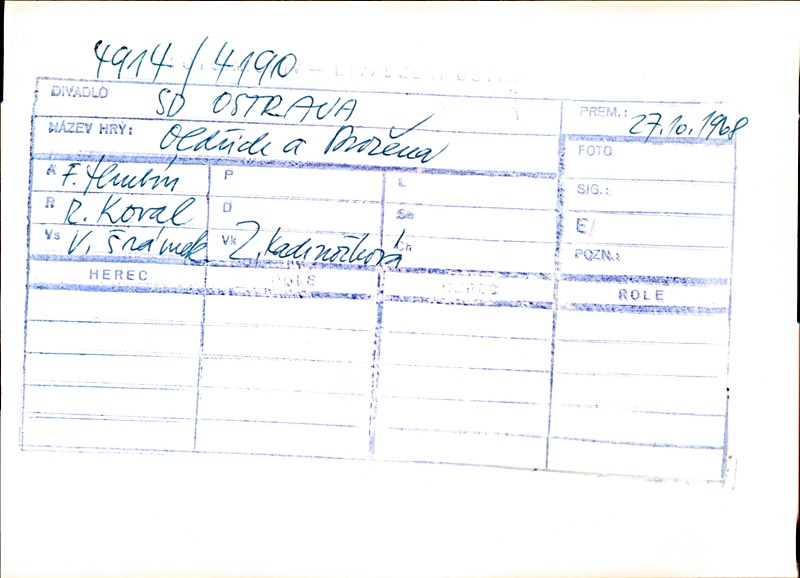 4914/4190
DIVADLO SD OSTRAVA PREM.: 27.10.1968
NÁZEV HRY: Oldřich a Božena FOTO
A F. Hrubín P L SIG.:
R R. Koval D Sm E/
Vs V. Šrámek Vk Z. Kadnožková Ch POZN.:
HEREC ROLE HEREC ROLE